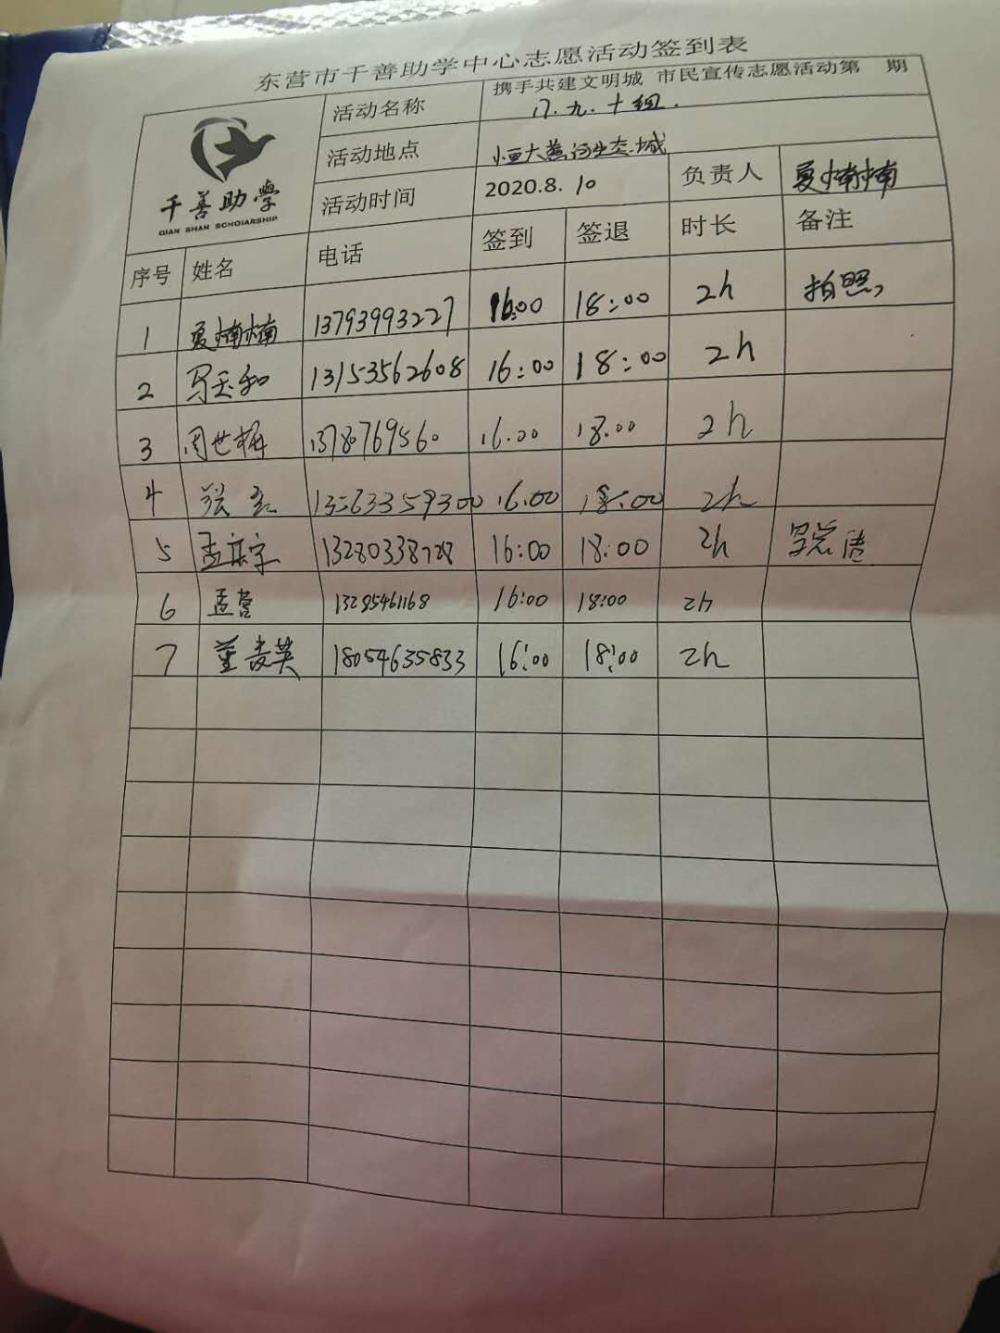 东营市千善助学中心志愿活动签到表
千善助学
QIAN SHAN SCHOLARSHIP
活动名称 携手共建文明城 市民宣传志愿活动第 期
八.九.十组.
活动地点 恒大黄河生态城
活动时间 2020.8.10 负责人 夏楠楠
序号 姓名 电话 签到 签退 时长 备注
1 夏楠楠 13793993227 16:00 18:00 2h 拍照
2 13153562608 16:00 18:00 2h
3 周世 1378769560 16.00 18.00 2h
4 张 13563359300 16:00 18:00 2h
5 孟 16:00 18:00 2h
6 孟营 13285461168 16:00 18:00 2h
7 董英 18054635833 16:00 18:00 2h